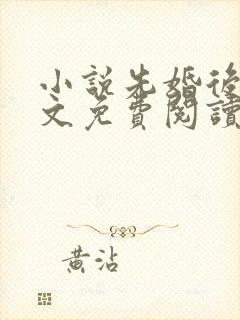 小說先婚後
文免費閱讀
黃沾